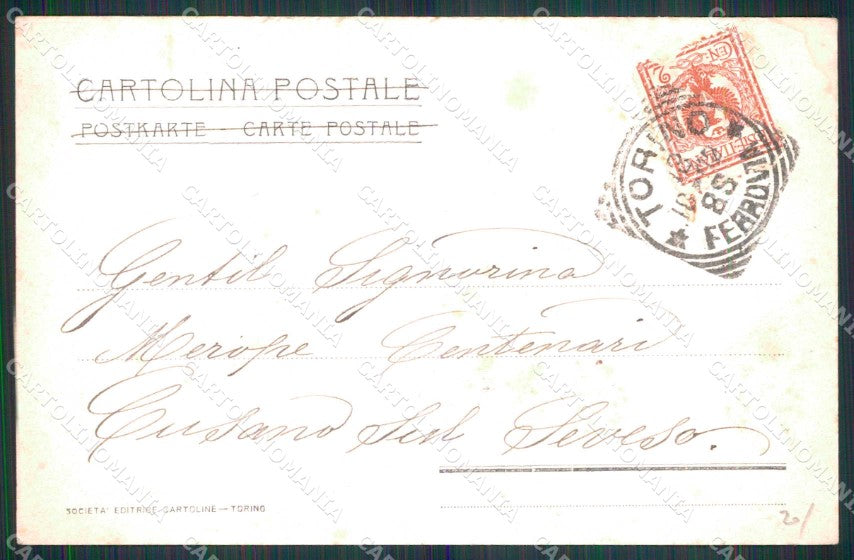 CARTOLINA POSTALE
POSTKARTE - CARTE POSTALE
TORINO
FERROVIA
8S
Gentil Signorina
Merope Centenari
Cusano sul Seveso.
SOCIETA' EDITRICE CARTOLINE - TORINO
20/
CARTOLINOMANIA